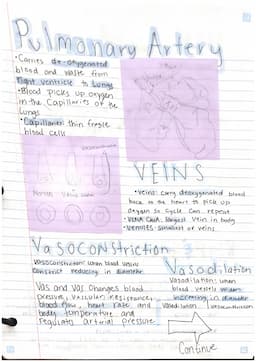 Pulmonary Artery
•Carries de-oxygenated
blood and waste from
right ventricle to lungs
•Blood picks up oxygen
in the capillaries of the
lungs
•Capillaries: thin fragile
blood cells
VEINS
•Veins: carry deoxygenated blood
back to the heart to pick up
oxygen so cycle can repeat
•Vena Cava: largest vein in body
•Venules: smallest of veins
Vasoconstriction
Vasoconstriction: when blood vessels
constrict reducing in diameter
Vas and Vas changes blood
pressure, vascular resistance,
blood flow, heart rate and
body temperature and
regulates arterial pressure
Vasodilation
Vasodilation: when
blood vessels widen
increasing in diameter
Continue